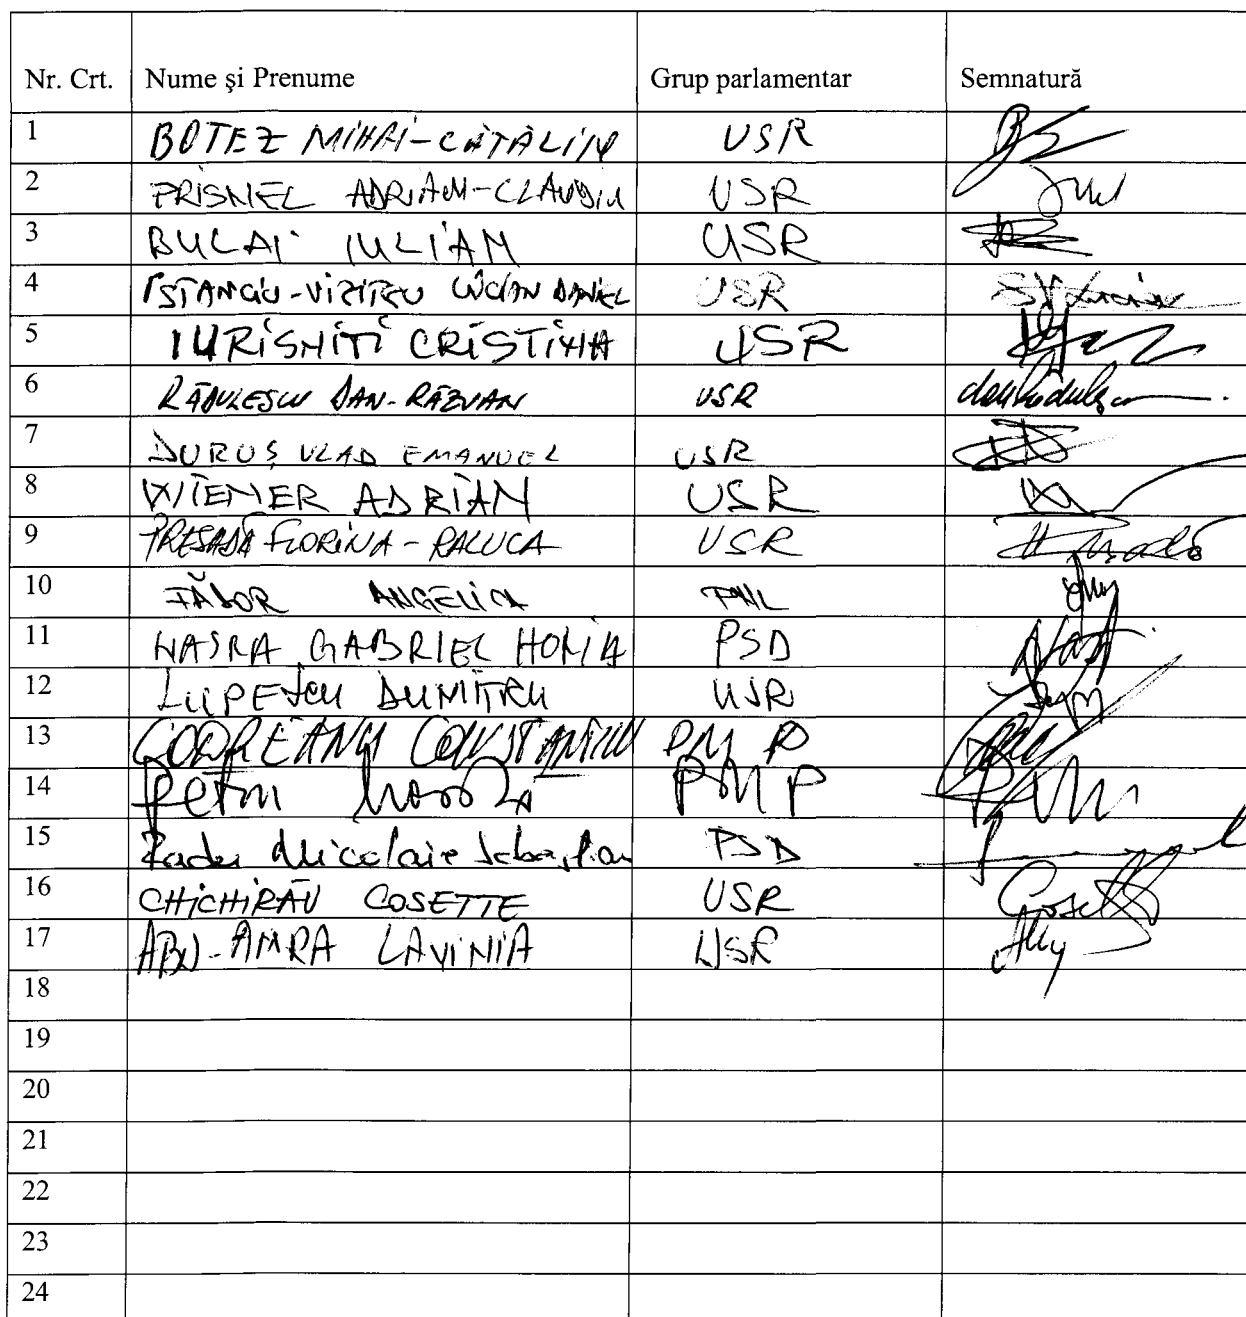 Nr. Crt. Nume și Prenume Grup parlamentar Semnatură
1 BOTEZ MIHAI-CĂTĂLIN USR
2 PRISNEL ADRIAN-CLAUDIU USR
3 BULAI IULIAN USR
4 STANCIU-VIZITEU LUCIAN DANIEL USR
5 IURISNITI CRISTINA USR
6 RĂDULESCU DAN-RĂZVAN USR
7 DURUȘ VLAD EMANUEL USR
8 WIENER ADRIAN USR
9 PRESADĂ FLORINA-RALUCA USR
10 FĂDOR ANGELICA PNL
11 NASRA GABRIEL HORIA PSD
12 LUPESCU DUMITRU USR
13 CODREANU CONSTANTIN PMP
14 Petru PMP
15 Radu Nicolaie Sebastian PSD
16 CHICHIRĂU COSETTE USR
17 ABU-AMRA LAVINIA USR
18
19
20
21
22
23
24